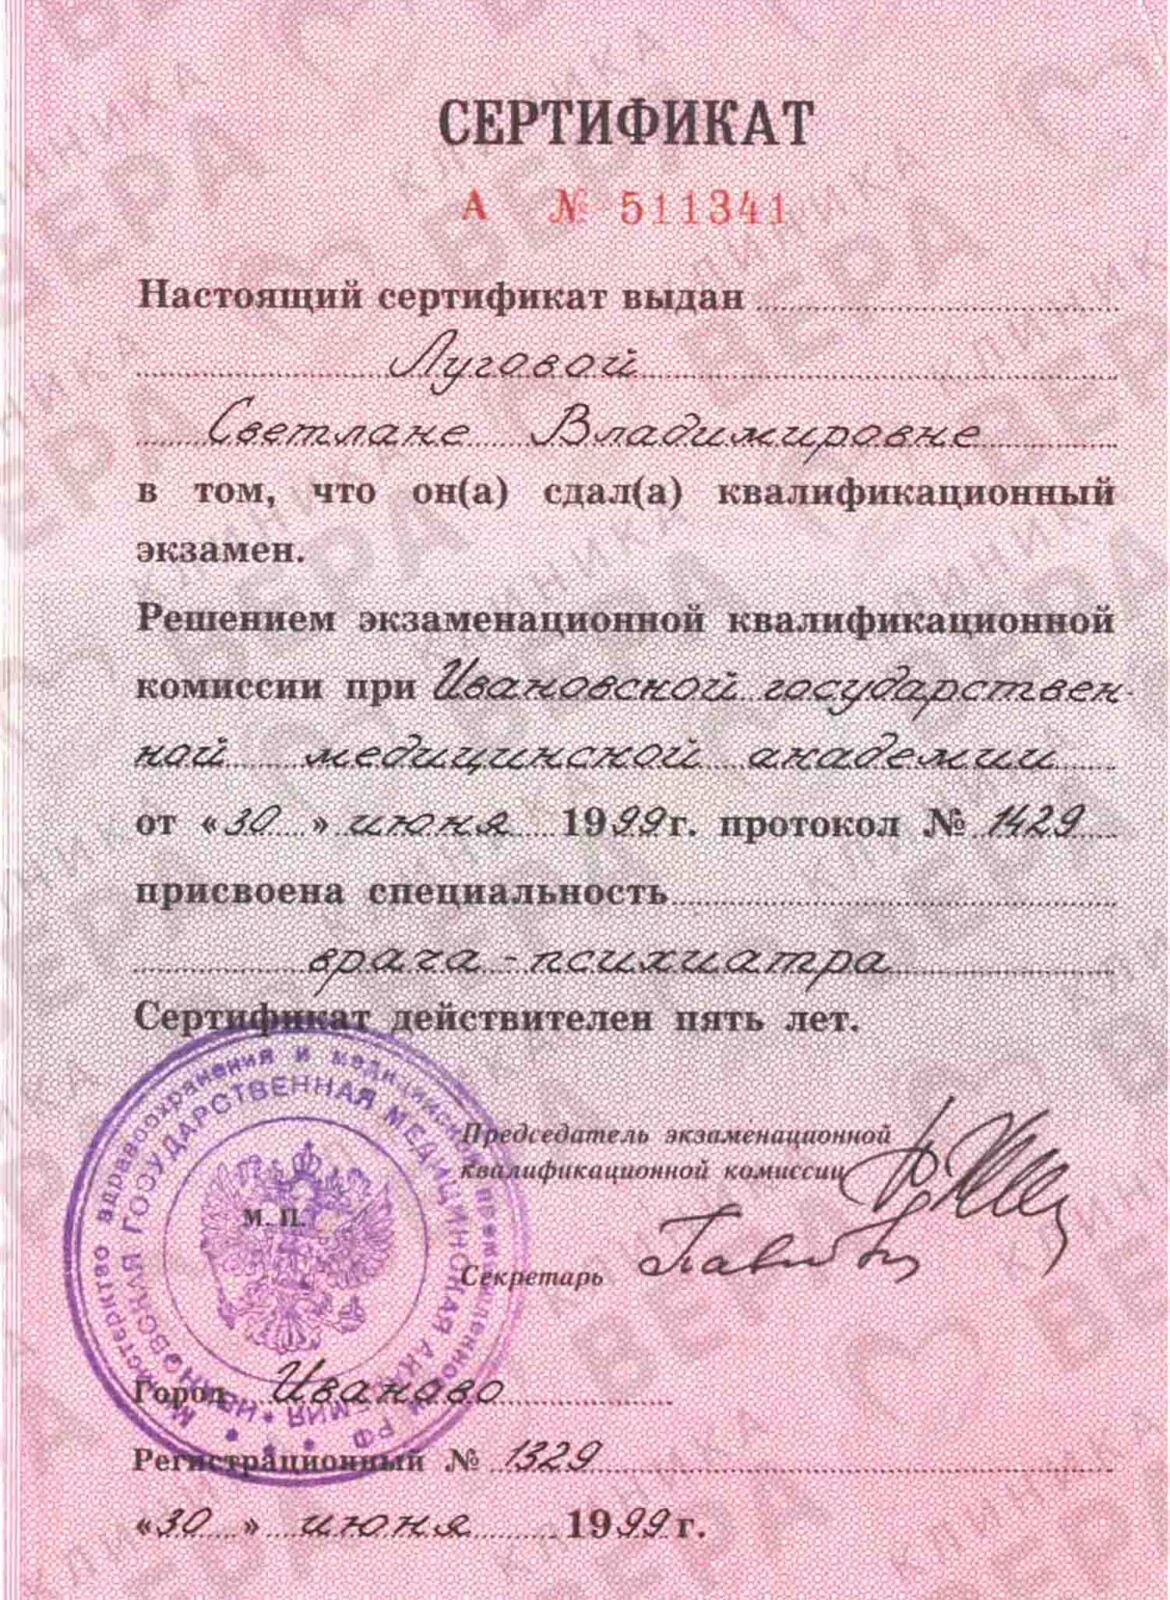 СЕРТИФИКАТ
А № 511341
Настоящий сертификат выдан
Луговой
Светлане Владимировне
в том, что он(а) сдал(а) квалификационный
экзамен.
Решением экзаменационной квалификационной
комиссии при Ивановской государствен-
ной медицинской академии
от «30» июня 1999 г. протокол № 1429
присвоена специальность
врача-психиатра
Сертификат действителен пять лет.
Председатель экзаменационной
квалификационной комиссии
М. П.
Секретарь
Город Иваново
Регистрационный № 1329
«30» июня 1999 г.
Министерство здравоохранения и медицинской промышленности РФ
ИВАНОВСКАЯ ГОСУДАРСТВЕННАЯ МЕДИЦИНСКАЯ АКАДЕМИЯ
КЛИНИКА ВЕРА